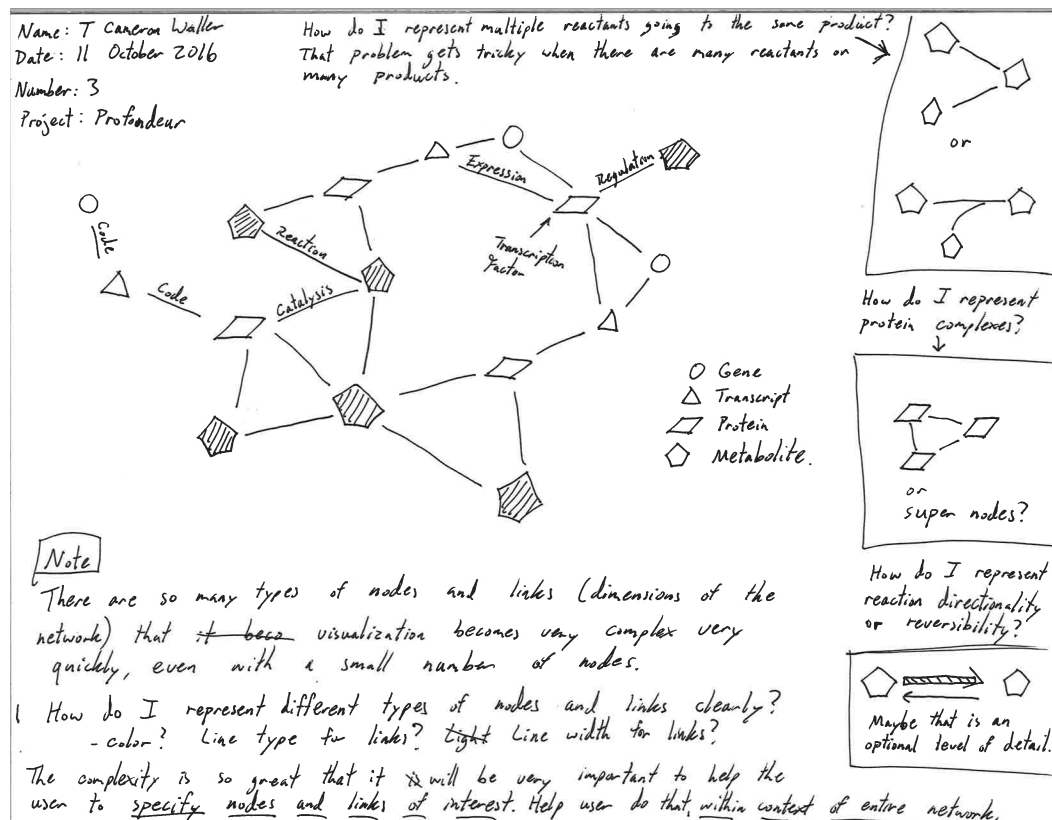 Name: T Cameron Waller
Date: 11 October 2016
Number: 3
Project: Profondeur
How do I represent multiple reactants going to the same product?
That problem gets tricky when there are many reactants or
many products.
or
Expression
Regulation
Code
Reaction
Transcription
Factor
Code
Catalysis
Gene
Transcript
Protein
Metabolite.
How do I represent
protein complexes?
or
super nodes?
How do I represent
reaction directionality
or reversibility?
Maybe that is an
optional level of detail.
Note
There are so many types of nodes and links (dimensions of the
network) that it beco visualization becomes very complex very
quickly, even with a small number of nodes.
How do I represent different types of nodes and links clearly?
- color? Line type for links? Light Line width for links?
The complexity is so great that it is will be very important to help the
user to specify nodes and links of interest. Help user do that, within context of entire network.